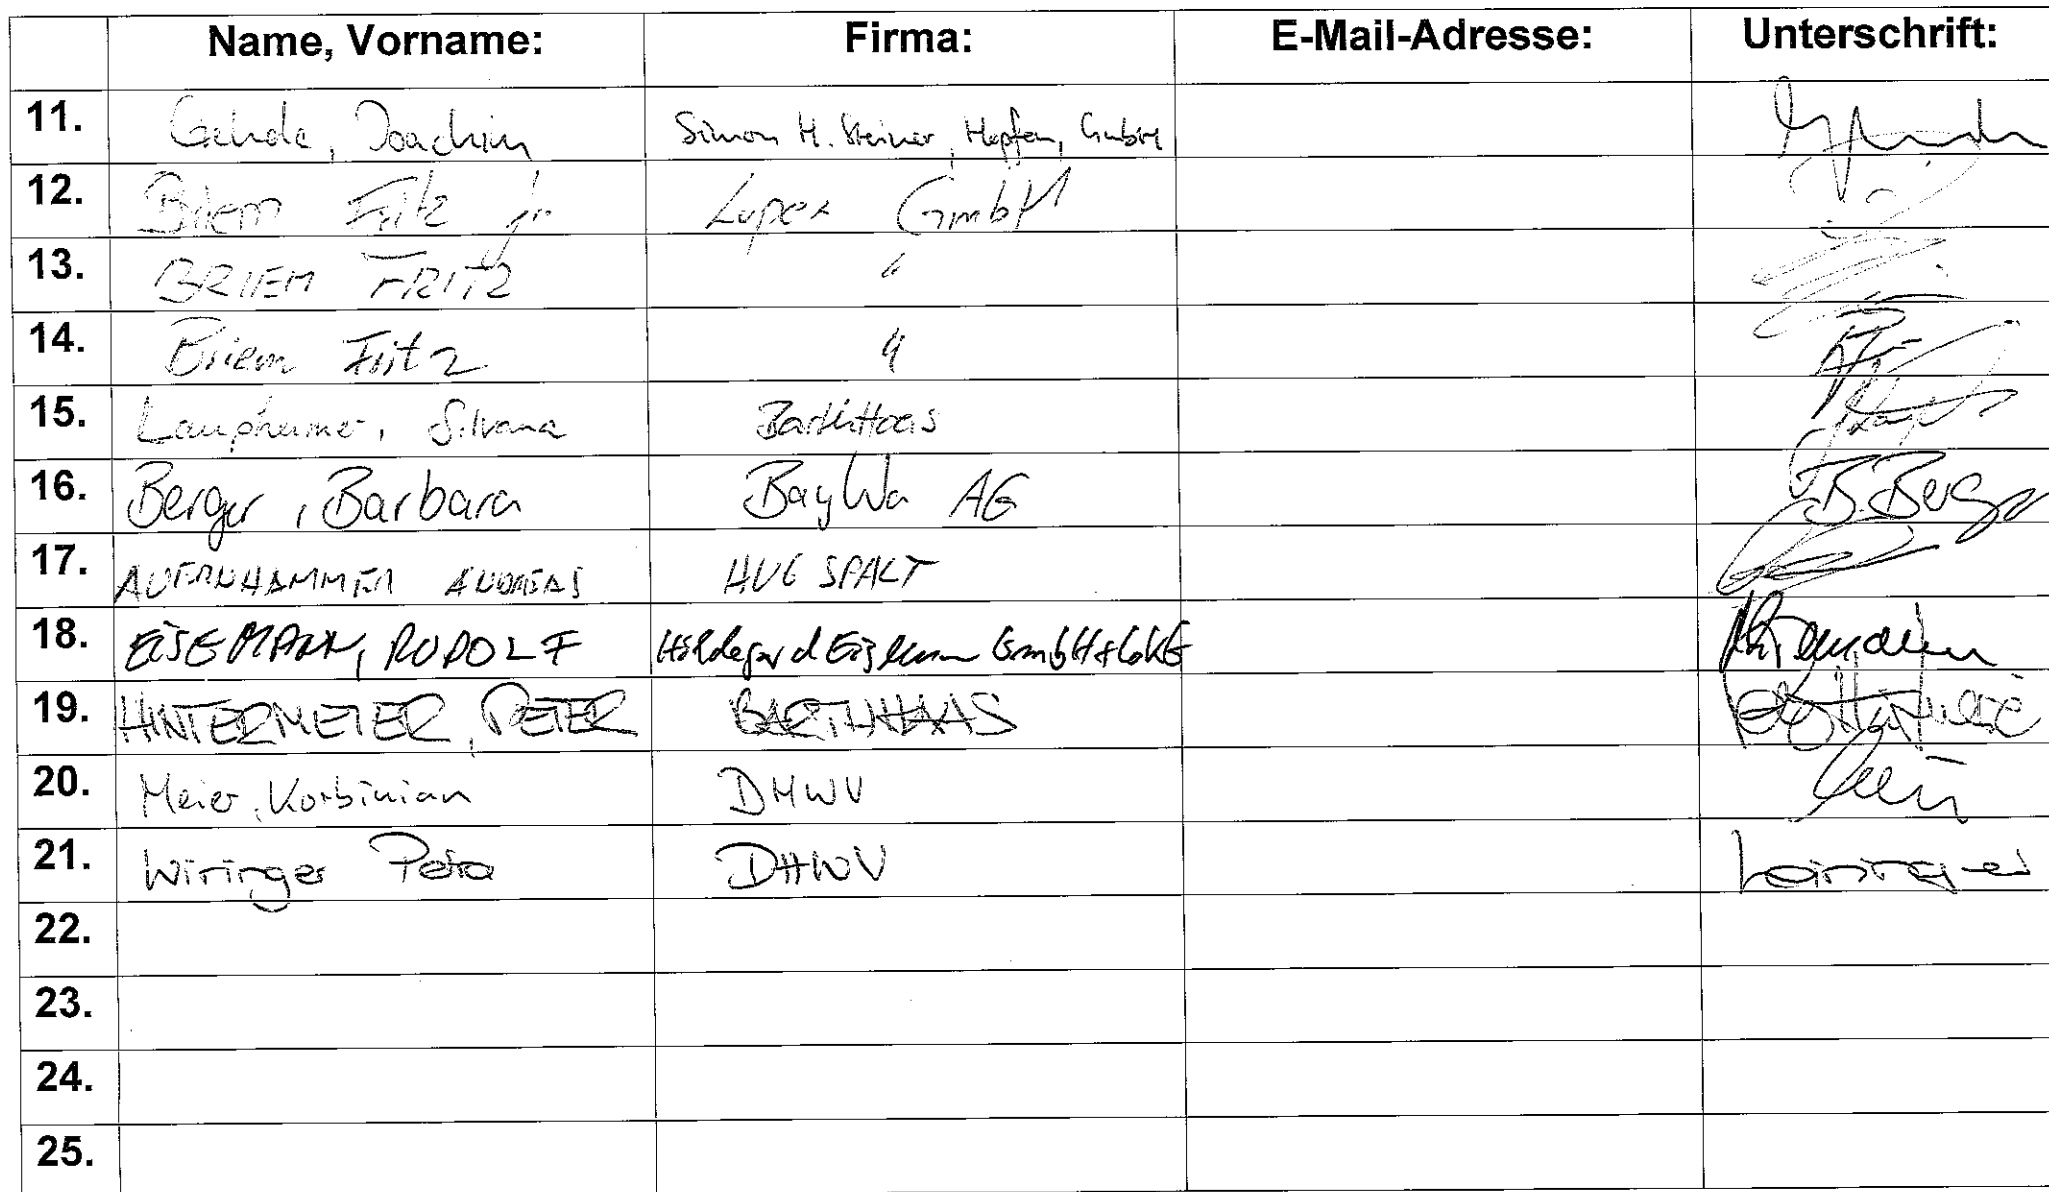 Name, Vorname: Firma: E-Mail-Adresse: Unterschrift:
11. Gehde, Joachim Simon H. Steiner, Hopfen, GmbH
12. Briem Fritz jr. Lupex GmbH
13. BRIEM FRITZ "
14. Briem Fritz "
15. Laupheimer, Silvana BarthHaas
16. Berger, Barbara BayWa AG B. Berger
17. AUERNHAMMER ANDREAS HVG SPALT
18. EISEMANN, RUDOLF Hildegard Eisemann GmbH & Co KG
19. HINTERMEIER, PETER BARTHHAAS
20. Meier, Korbinian DHWV
21. Wiringer Petra DHWV Wiringer
22.
23.
24.
25.